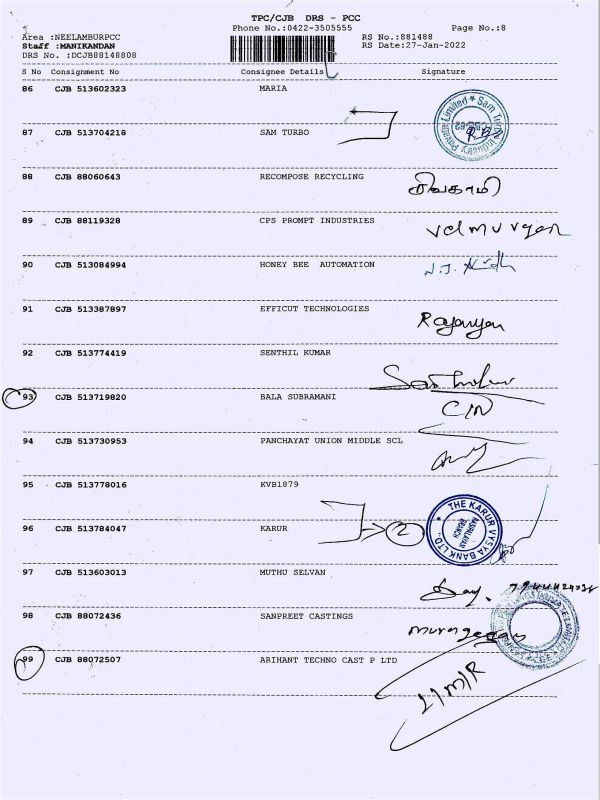 TPC/CJB DRS - PCC
Phone No.:0422-3505555 Page No.:8
Area :NEELAMBURPCC RS No.:881488
Staff :MANIKANDAN RS Date:27-Jan-2022
DRS No. :DCJB88148808
S No Consignment No Consignee Details Signature
86 CJB 513602323 MARIA
87 CJB 513704218 SAM TURBO
88 CJB 88060643 RECOMPOSE RECYCLING சிவகாமி
89 CJB 88119328 CPS PROMPT INDUSTRIES velmurugan
90 CJB 513084994 HONEY BEE AUTOMATION
91 CJB 513387897 EFFICUT TECHNOLOGIES
92 CJB 513774419 SENTHIL KUMAR
93 CJB 513719820 BALA SUBRAMANI
94 CJB 513730953 PANCHAYAT UNION MIDDLE SCL
95 CJB 513778016 KVB1879
THE KARUR VYSYA BANK LTD.
96 CJB 513784047 KARUR 2
97 CJB 513603013 MUTHU SELVAN
98 CJB 88072436 SANPREET CASTINGS
99 CJB 88072507 ARIHANT TECHNO CAST P LTD